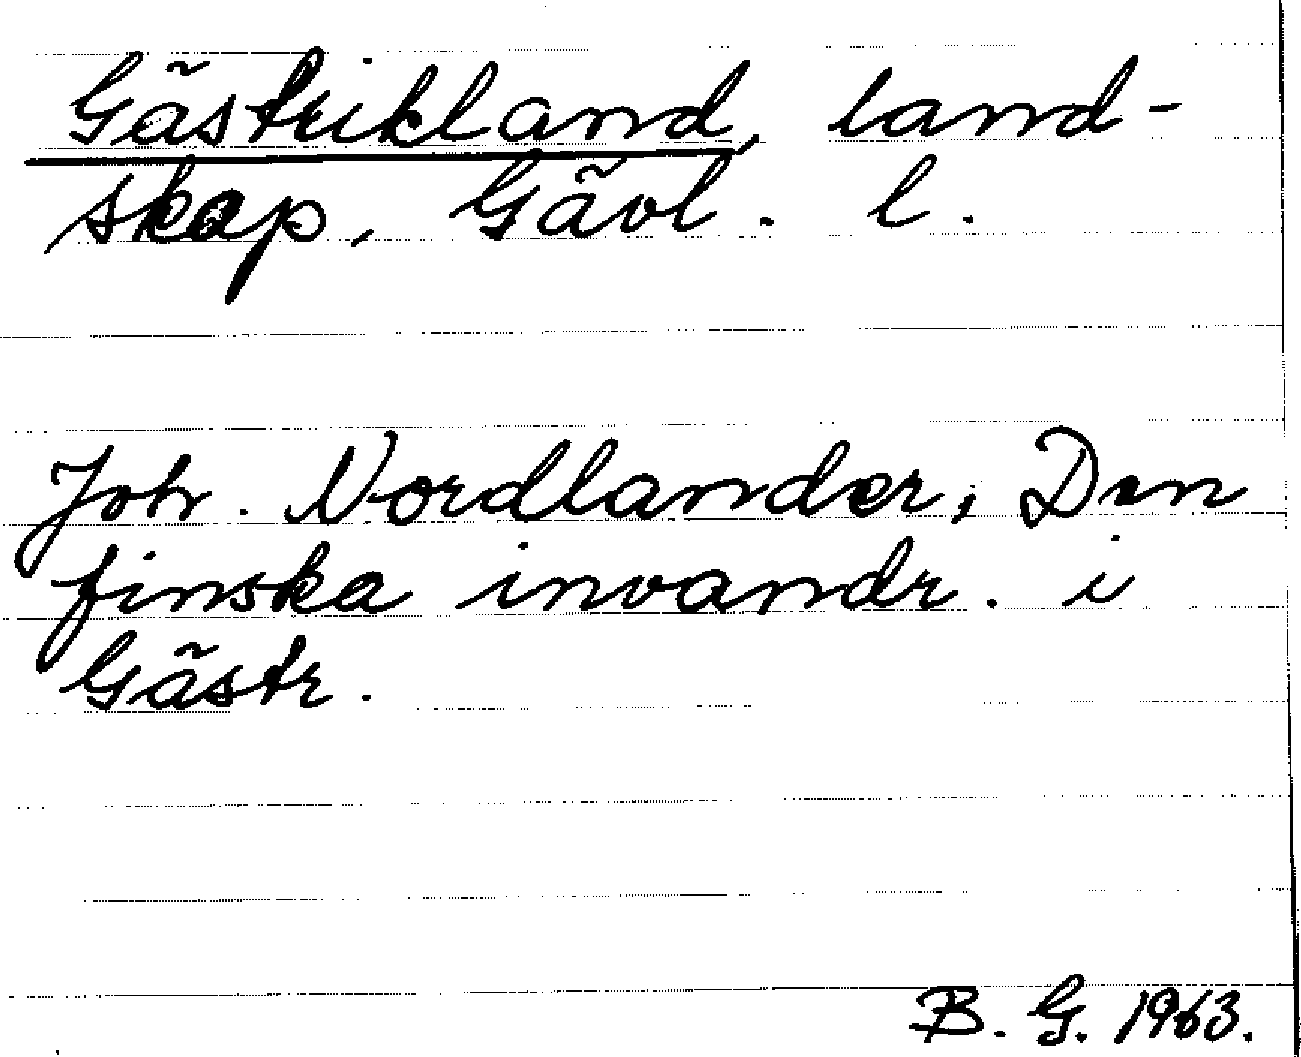 Gästrikland, land-
skap, Gävl. l.
Joh. Nordlander, Den
finska invandr. i
Gästr.
B. G. 1963.